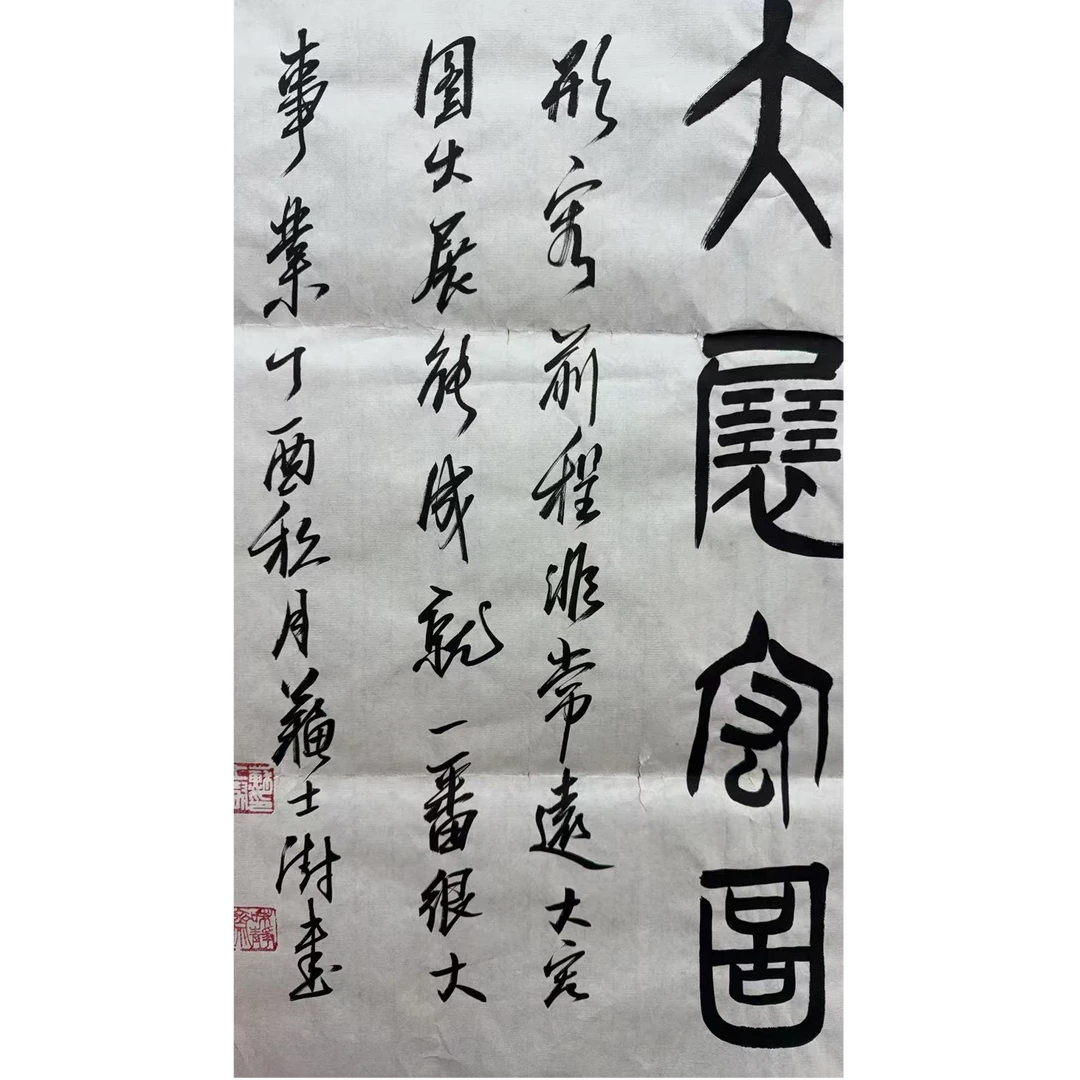 大展宏圖
形容前程非常遠大宏
圖大展能成就一番很大
事業丁酉秋月蘇士澍書